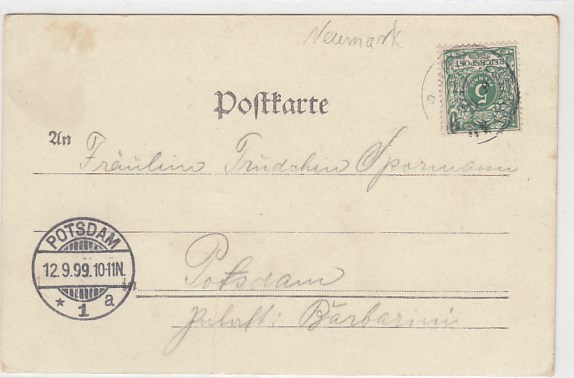 Neumark
REICHSPOST
5
Postkarte
An
Fräulein Trudchen Spormann
POTSDAM
12.9.99.10-11N.
* 1 a
in
Potsdam
Palast: Barbarini